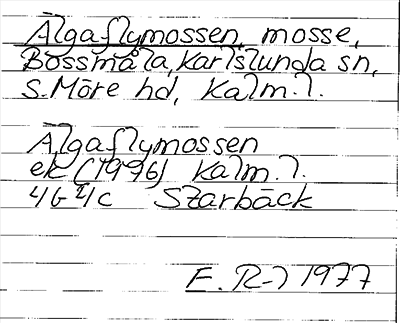 Älgaflymossen, mosse,
Bossmåla, Karlslunda sn,
S. Möre hd, Kalm. l.
Älgaflymossen
ek (1996) Kalm. l.
4G 4c Starbäck
E. R-) 1977